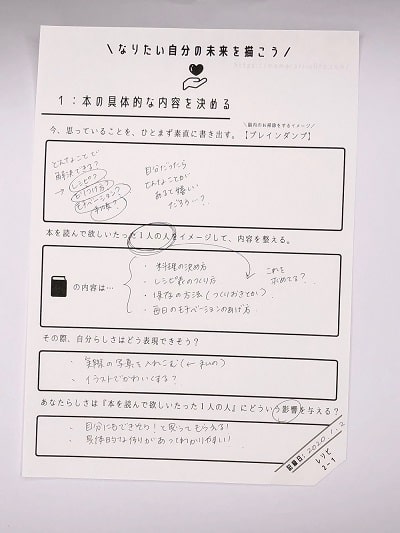 ＼なりたい自分の未来を描こう／
1：本の具体的な内容を決める
＼脳内のお掃除をするイメージ／
今、思っていることを、ひとまず素直に書き出す。【ブレインダンプ】
どんなことで
解決できる？
→レシピ？
モチベーション？
自分だったら
どんなことが
あると嬉しい
だろう…？
本を読んで欲しいたった1人の人をイメージして、内容を整える。
の内容は…
・料理の決め方
・レシピ表のつくり方
・保存の方法（つくりおきとか）
・毎日のモチベーションのあげ方
これを
求めてる？
その際、自分らしさはどう表現できそう？
・実際の写真を入れこむ
・イラストでかわいくする？
あなたらしさは『本を読んで欲しいたった1人の人』にどういう影響を与える？
・自分にもできそう！と思ってもらえる！
・具体的な作りがあってわかりやすい！
記入日：2020.1.2
レシピ
2-1